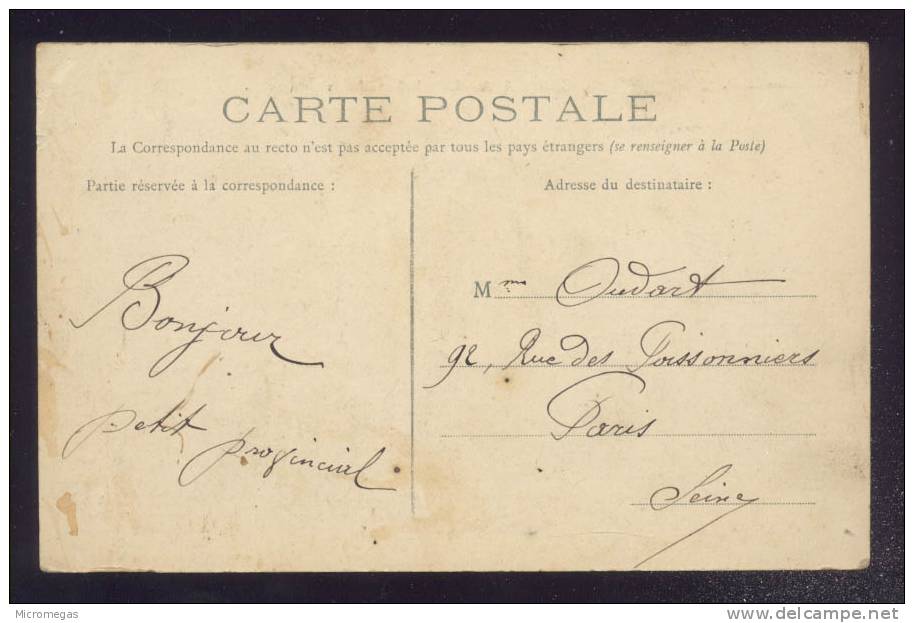 CARTE POSTALE
La Correspondance au recto n'est pas acceptée par tous les pays étrangers (se renseigner à la Poste)
Partie réservée à la correspondance :
Bonjour
petit provincial
Adresse du destinataire :
Mme Oudart
92, Rue des Poissonniers
Paris
Seine
Micromegas
www.delcampe.net